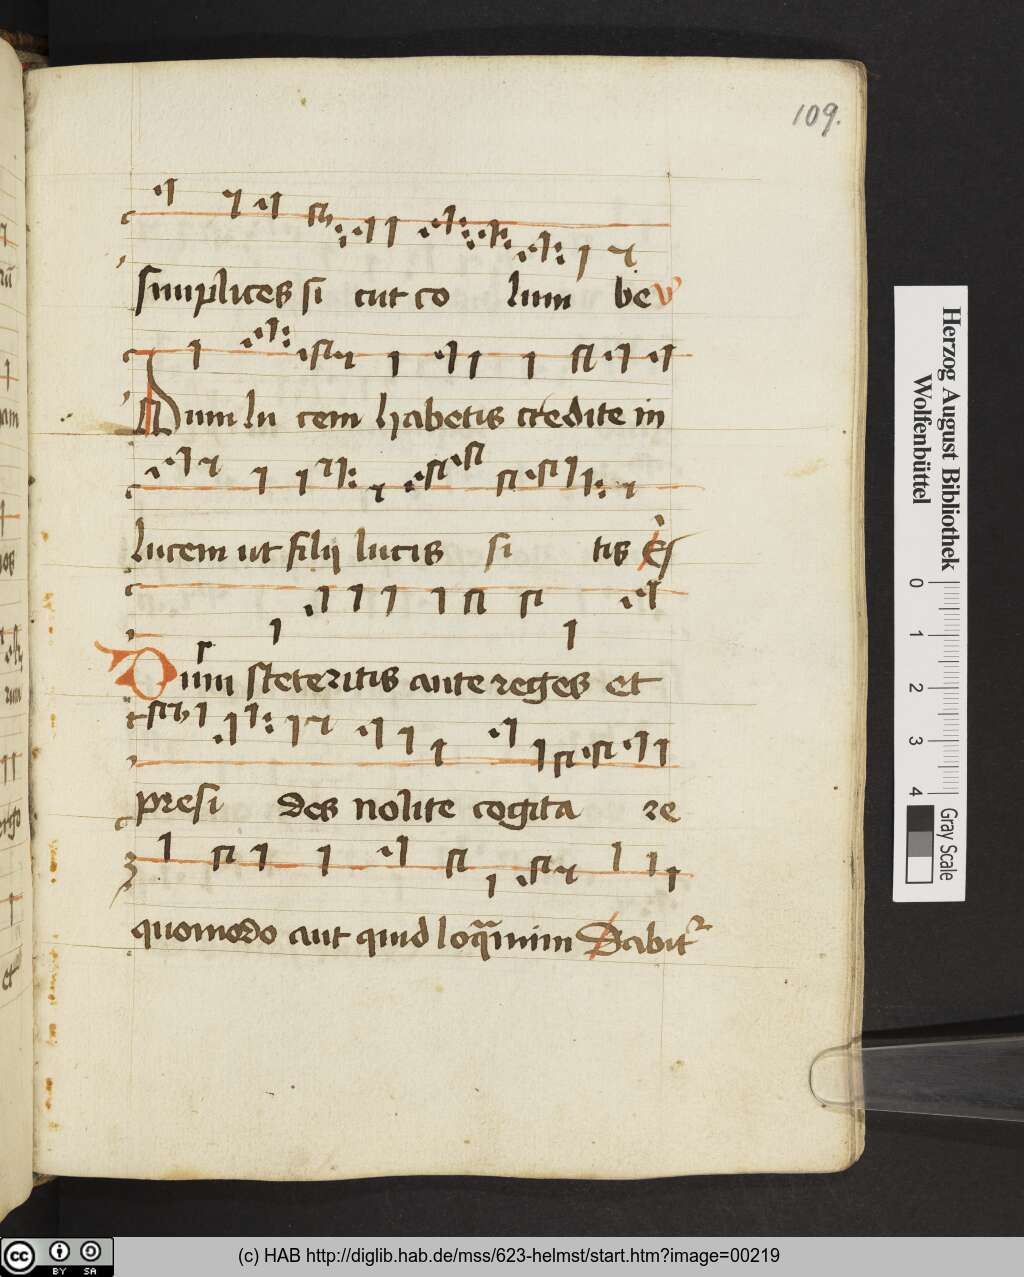 109.
simplices si cut co lum be v
Dum lu cem habetis credite in
lucem ut filij lucis si tis
Dum steteritis ante reges et
presi des nolite cogita re
quomodo aut quid loq̄mini Dabit᷑
Herzog August Bibliothek
Wolfenbüttel
0 1 2 3 4
Gray Scale
cc BY SA
(c) HAB http://diglib.hab.de/mss/623-helmst/start.htm?image=00219